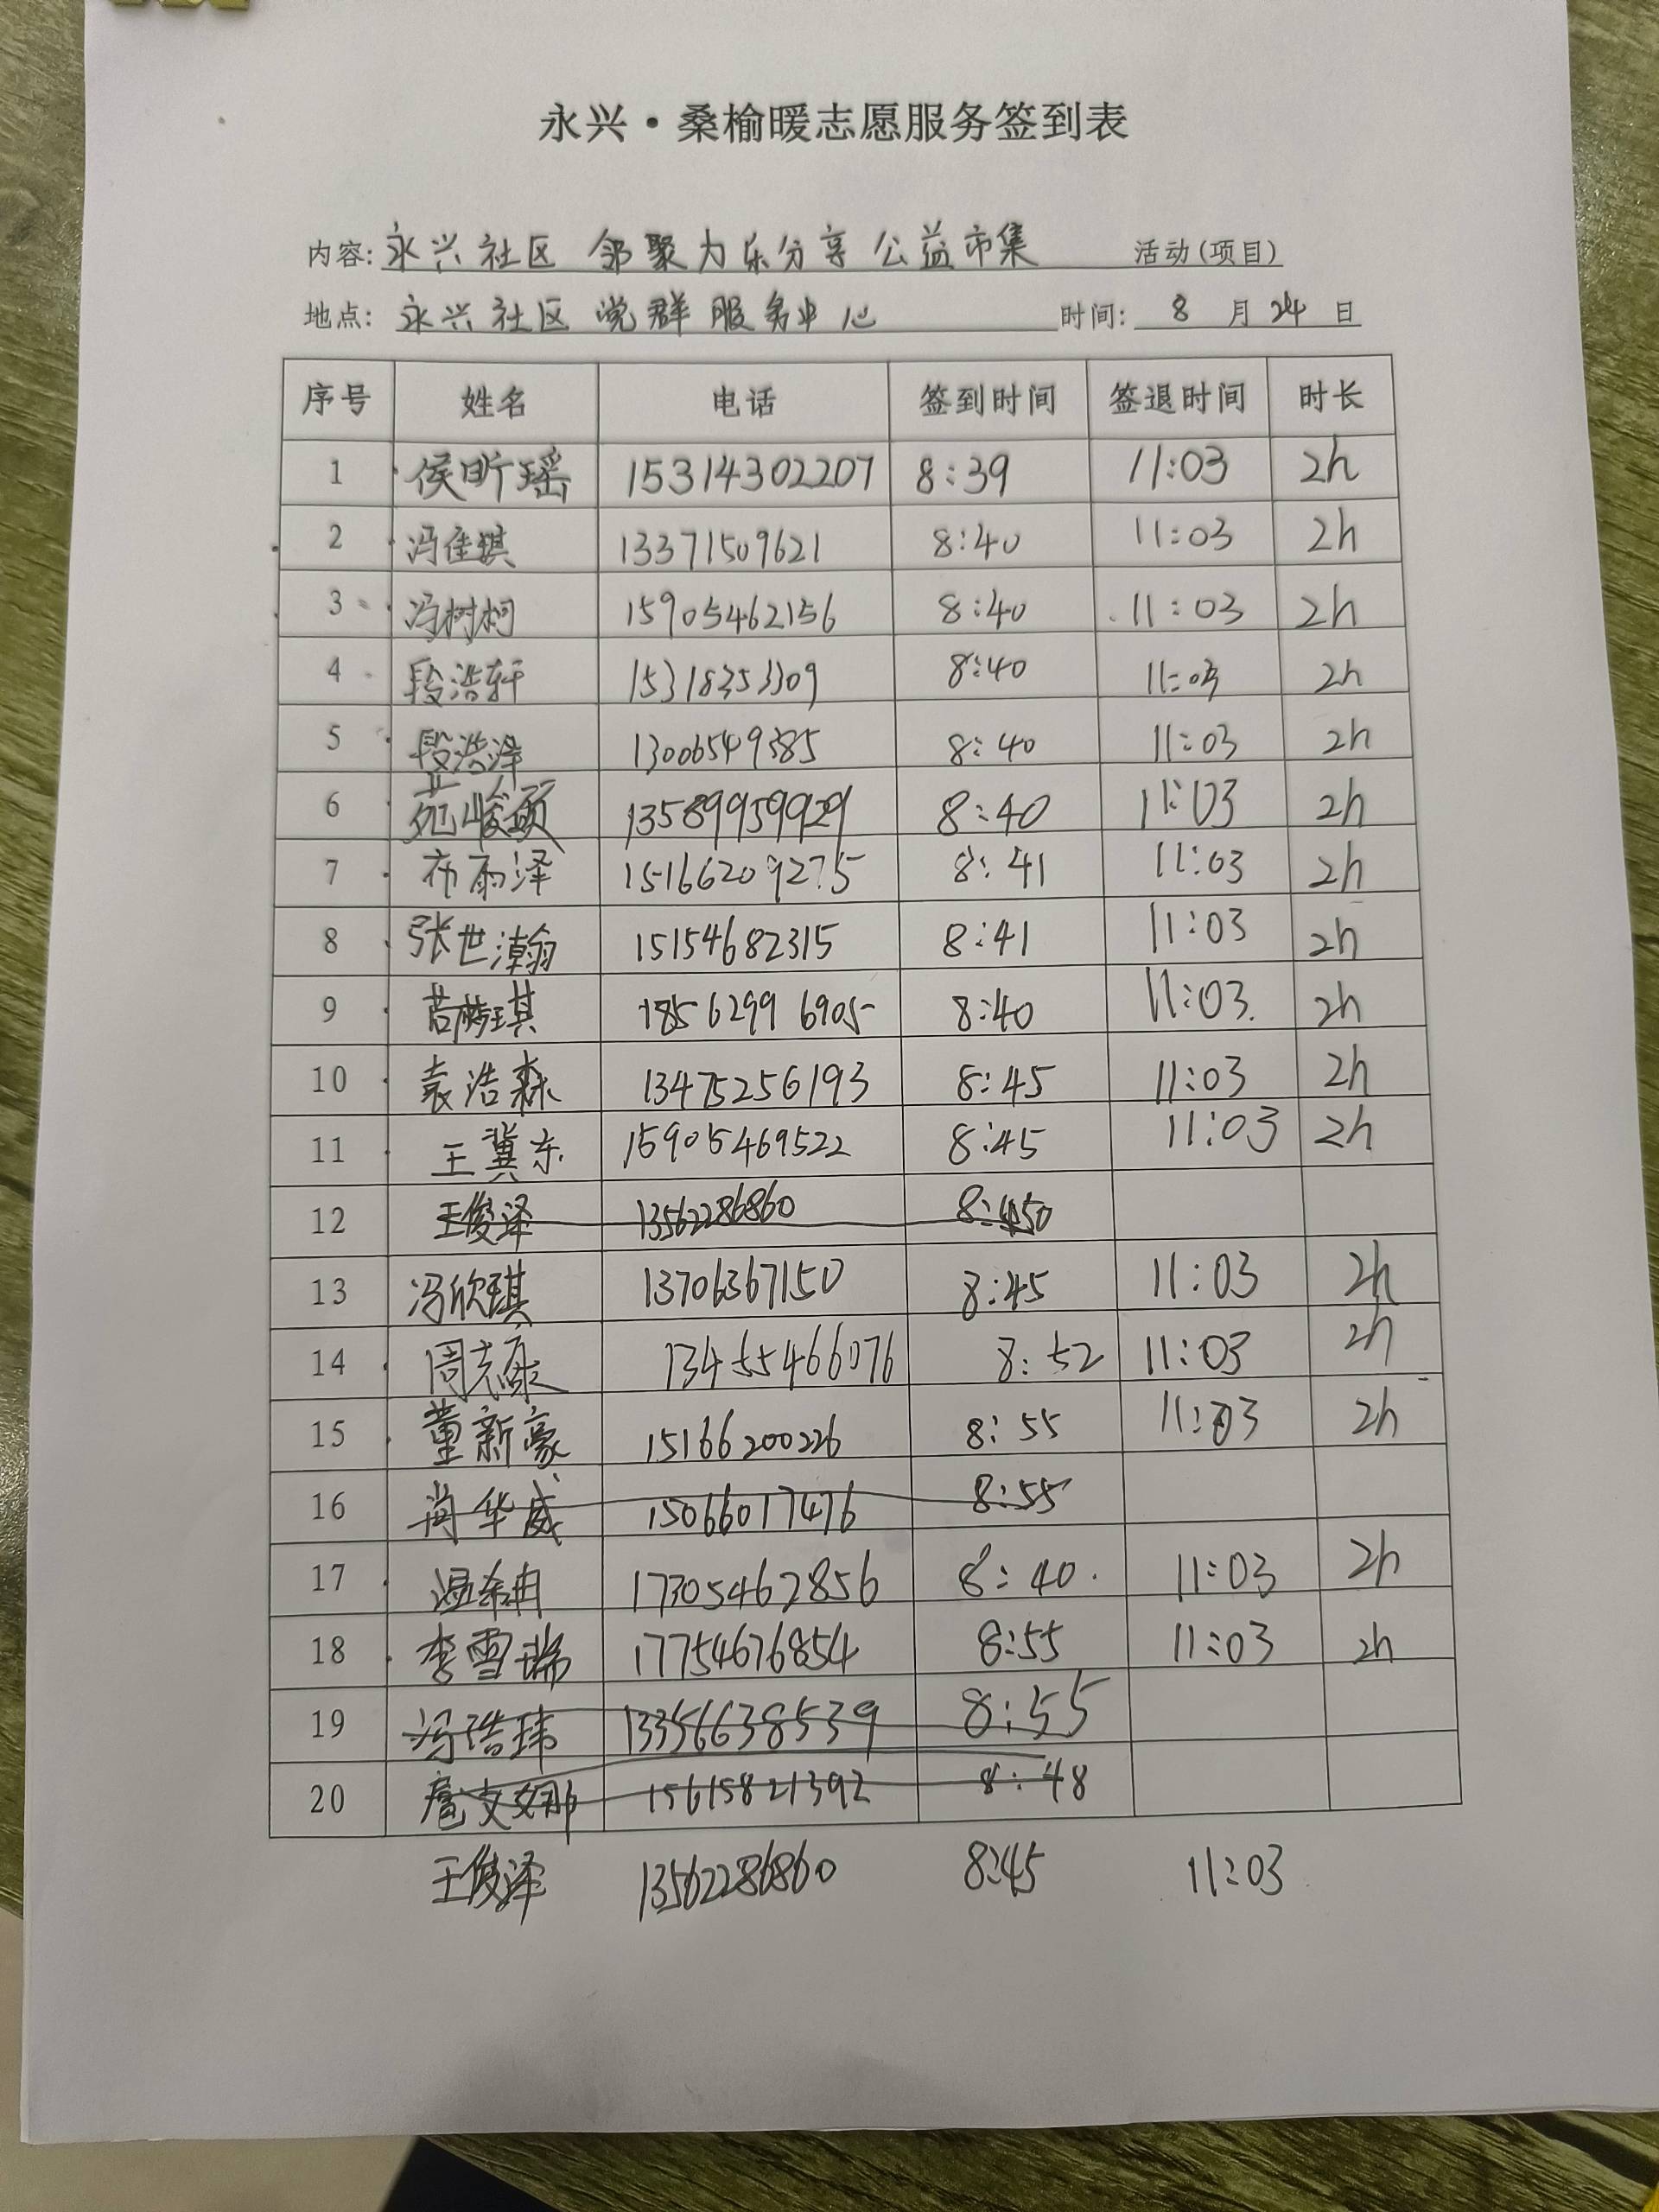 永兴·桑榆暖志愿服务签到表
内容: 永兴社区 邻聚为乐分享 公益市集 活动(项目)
地点: 永兴社区 党群服务中心 时间: 8 月 24 日
序号 姓名 电话 签到时间 签退时间 时长
1 侯昕瑶 15314302207 8:39 11:03 2h
2 冯佳琪 13371509621 8:40 11:03 2h
3 冯树柯 15905462156 8:40 11:03 2h
4 段浩轩 15318353309 8:40 11:03 2h
5 段浩泽 13006549385 8:40 11:03 2h
6 苑峻硕 13589959929 8:40 11:03 2h
7 布雨泽 15166209275 8:41 11:03 2h
8 张世瀚 15154682315 8:41 11:03 2h
9 18562996905 8:40 11:03 2h
10 袁浩森 13475256193 8:45 11:03 2h
11 王冀东 15905469522 8:45 11:03 2h
12 王俊泽 13562286860
13 冯欣琪 13706367150 8:45 11:03 2h
14 周克康 13455466076 8:52 11:03 2h
15 董新豪 15166200226 8:55 11:03 2h
16 尚华威 15066017476 8:55
17 温 冉 17305462856 8:40 11:03 2h
18 李雪瑞 17754676854 8:55 11:03 2h
19 冯浩玮 13356638539 8:55
20 扈文娜 15615821392 8:48
王俊泽 13562286860 8:45 11:03